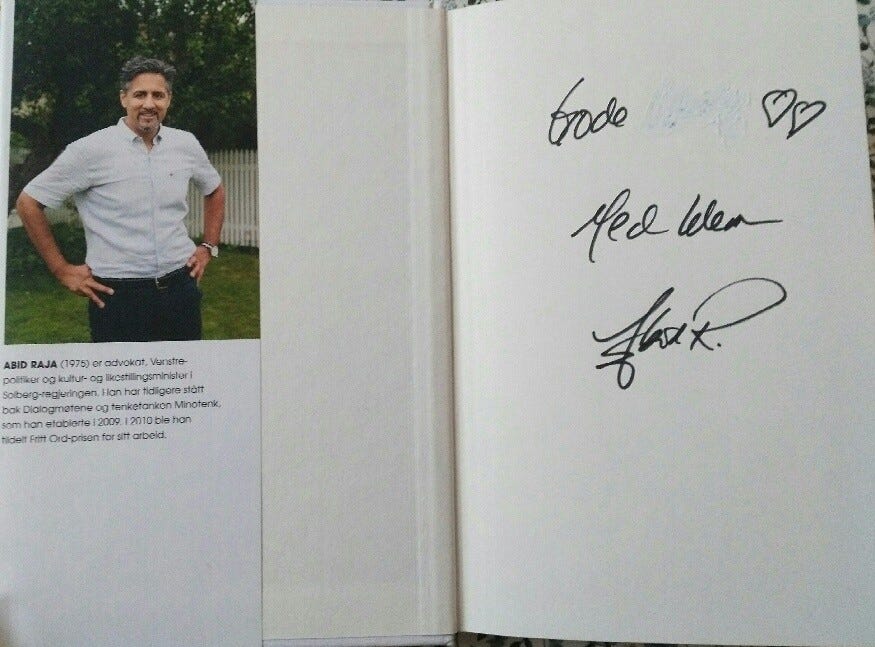 ABID RAJA (1975) er advokat, Venstre-
politiker og kultur- og likestillingsminister i
Solberg-regjeringen. Han har tidligere stått
bak Dialogmøtene og tenketanken Minotenk,
som han etablerte i 2009. I 2010 ble han
tildelt Fritt Ord-prisen for sitt arbeid.
Gode
Med klem
Abid R.